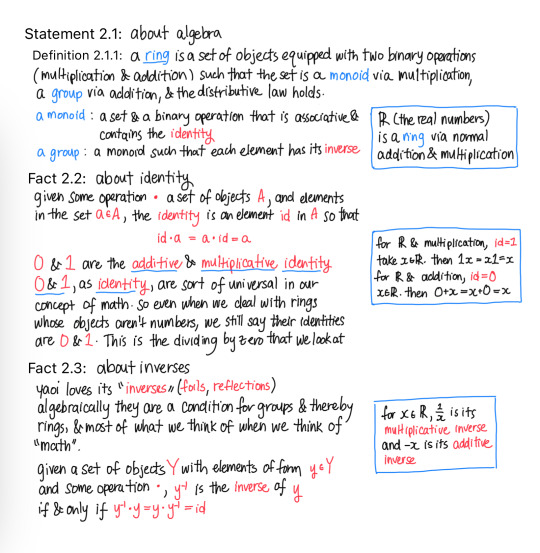 Statement 2.1: about algebra
Definition 2.1.1: a ring is a set of objects equipped with two binary operations
(multiplication & addition) such that the set is a monoid via multiplication,
a group via addition, & the distributive law holds.
a monoid : a set & a binary operation that is associative &
contains the identity
a group : a monoid such that each element has its inverse
ℝ (the real numbers)
is a ring via normal
addition & multiplication
Fact 2.2: about identity
given some operation • a set of objects A, and elements
in the set a∈A, the identity is an element id in A so that
id·a = a·id = a
0 & 1 are the additive & multiplicative identity
0 & 1, as identity, are sort of universal in our
concept of math. so even when we deal with rings
whose objects aren't numbers, we still say their identities
are 0 & 1. This is the dividing by zero that we look at
for ℝ & multiplication, id=1
take x∈ℝ. then 1x = x1 = x
for ℝ & addition, id=0
x∈ℝ. then 0+x = x+0 = x
Fact 2.3: about inverses
yaoi loves its "inverses" (foils, reflections)
algebraically they are a condition for groups & thereby
rings, & most of what we think of when we think of
"math".
given a set of objects Y with elements of form y∈Y
and some operation •, y⁻¹ is the inverse of y
if & only if y⁻¹·y = y·y⁻¹ = id
for x∈ℝ, 1/x is its
multiplicative inverse
and -x is its additive
inverse